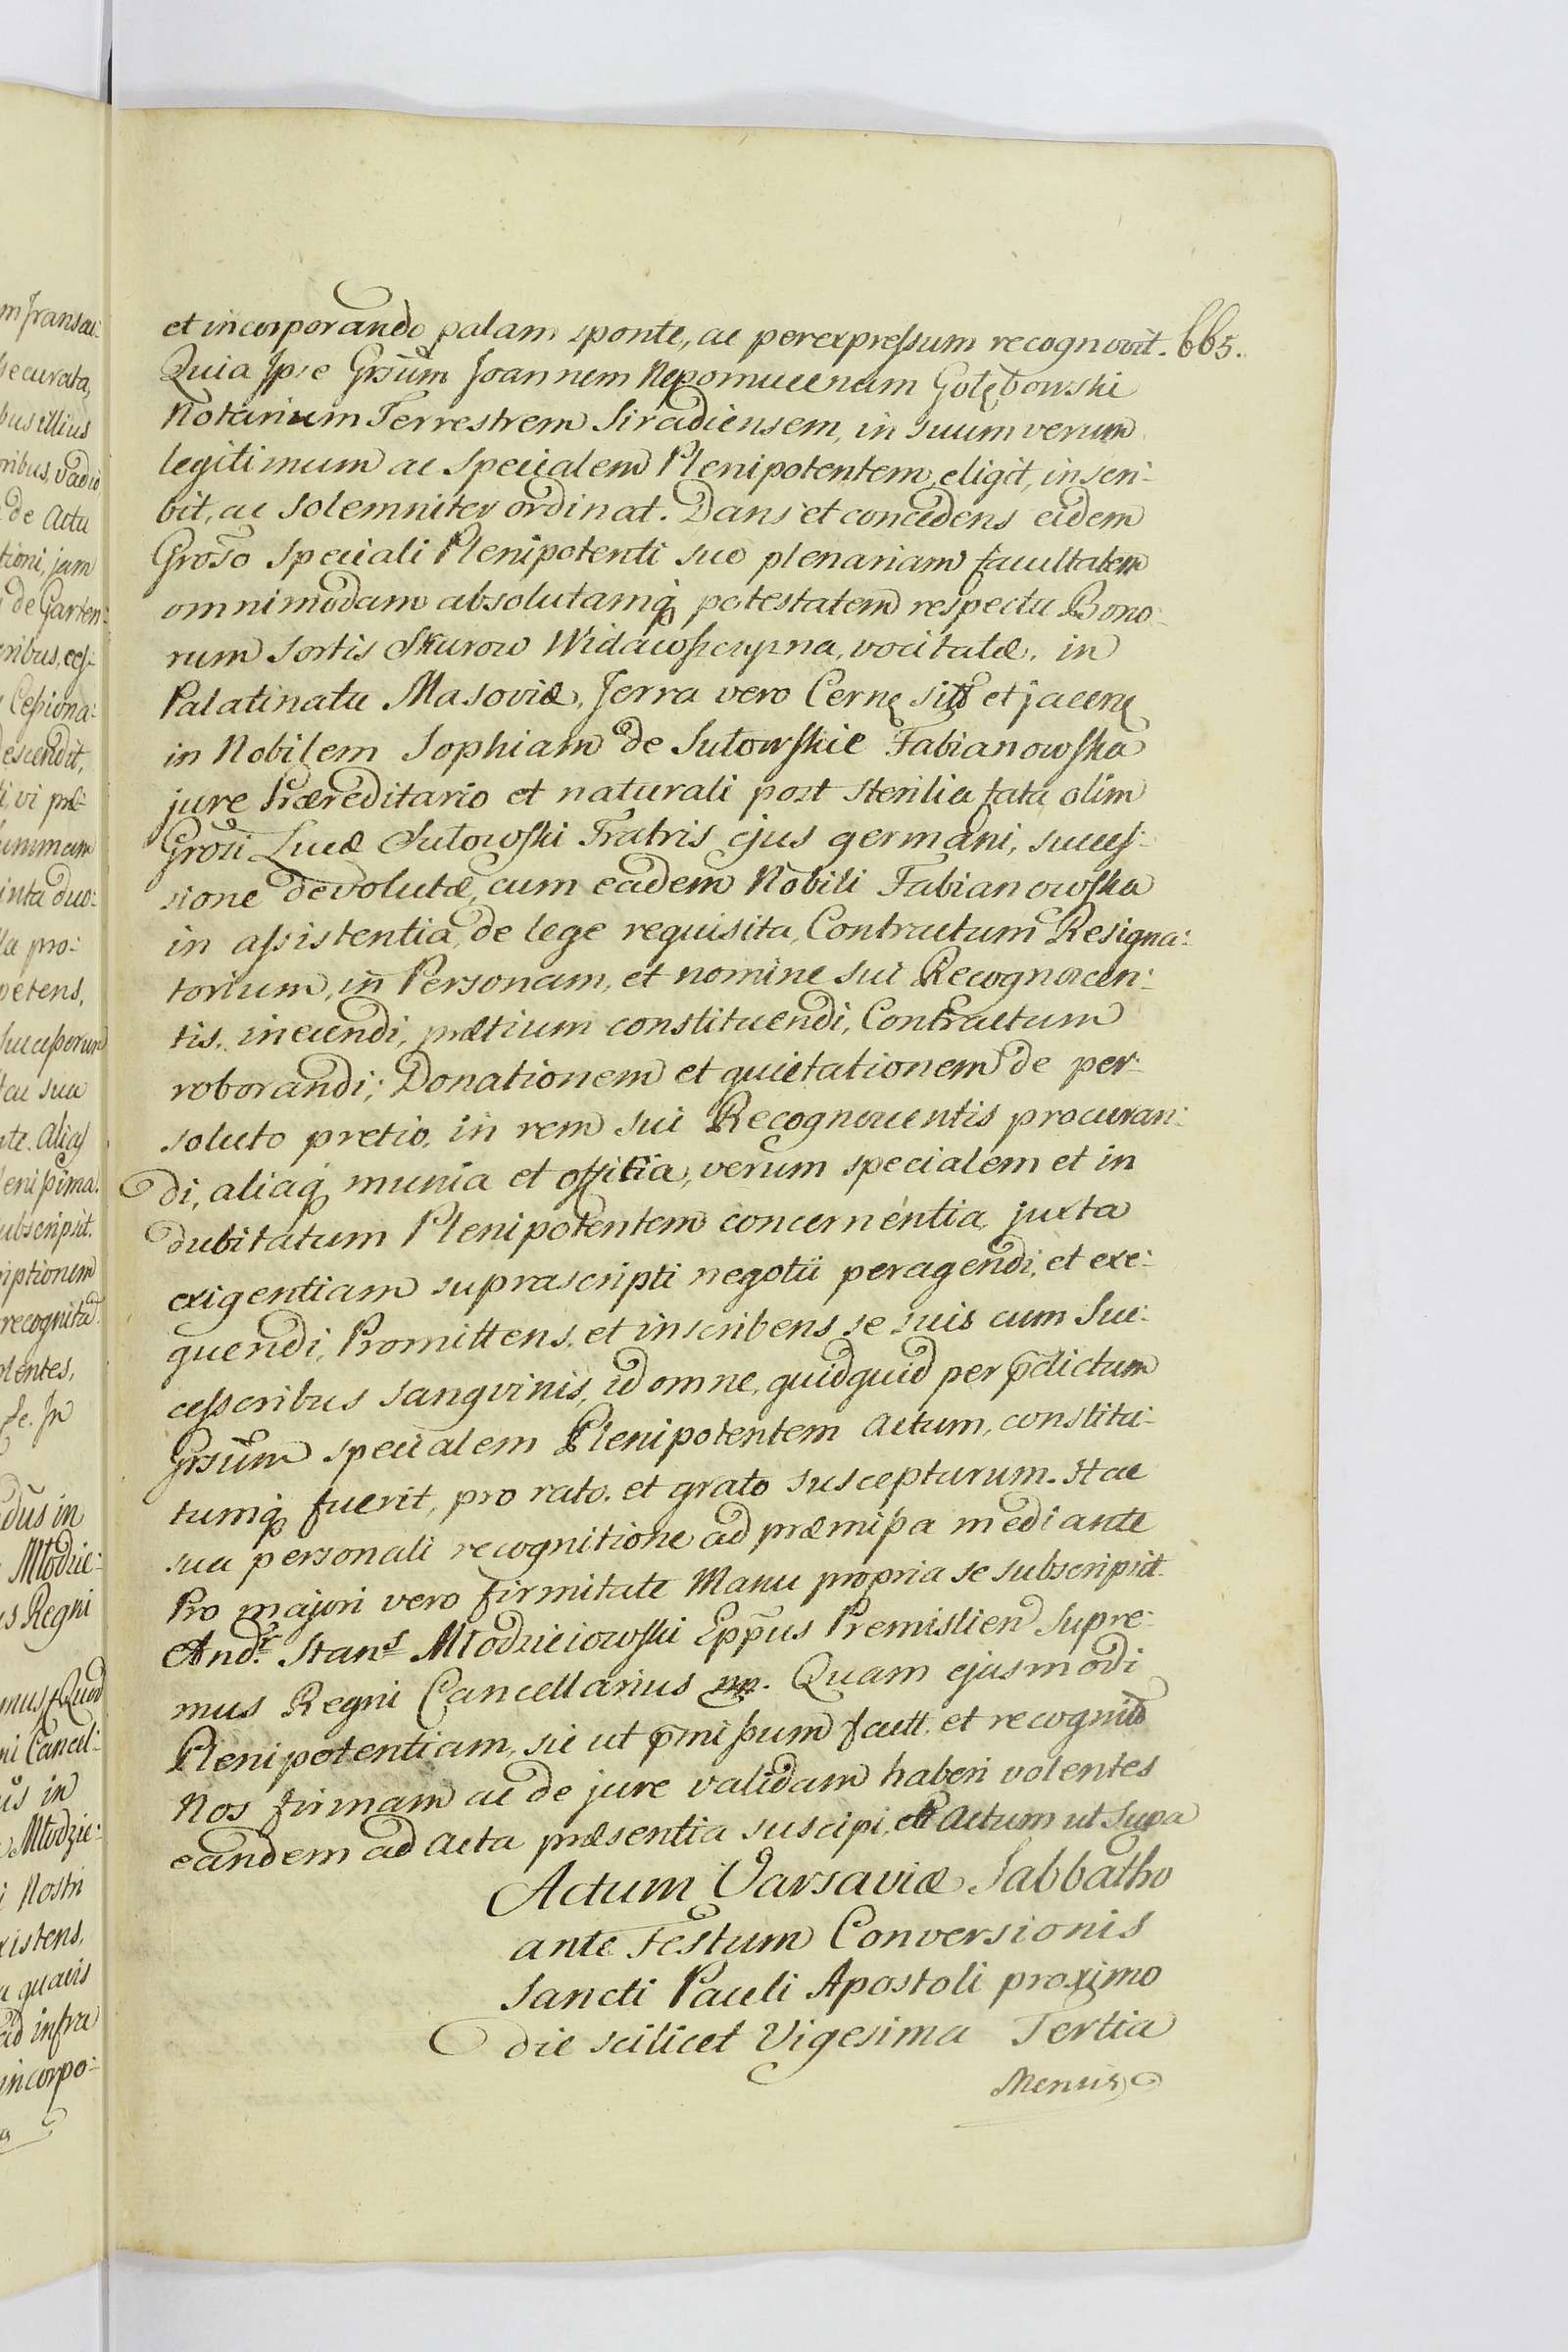 et incorporando palam sponte, ac perexpressum recognovit. 665.
Quia Ipse Grsūm Joannem Nepomucenum Gołębowski
Notarium Terrestrem Siradiensem, in suum verum
legitimum ac specialem Plenipotentem eligit, inscri-
bit, ac solemniter ordinat. Dans et concedens eidem
Groso speciali Plenipotenti suo plenariam facultatem
omnimodam absolutamq potestatem respectu Bono-
rum sortis Skurow Widawszczyzna, vocitatæ, in
Palatinatu Masoviæ, Terra vero Cernę sitæ et jacenę
in Nobilem Sophiam de Sutowskie Fabianowska
jure hæreditario et naturali post sterilia fata olim
Grosi Lucæ Sutowski Fratris ejus germani, succes-
sione devolutæ, cum eadem Nobili Fabianowska
in assistentia, de lege requisita, Contractum Resigna:
torium, in Personam, et nomine sui Recognoscen:
tis, ineundi, prætium constituendi, Contractum
roborandi; Donationem et quietationem de per-
soluto pretio, in rem sui Recognoscentis procuran:
di, aliaq munia et officia, verum specialem et in
dubitatum Plenipotentem concernentia, juxta
exigentiam suprascripti negotii peragendi, et exe:
quendi, Promittens, et inscribens se suis cum Suc:
cessoribus sangvinis, id omne, quidquid per p̄dictum
Grsūm specialem Plenipotentem actum, constitu-
tumq fuerit, pro rato, et grato suscepturum. Hac
sua personali recognitione ad præmissa mediante
Pro majori vero firmitate Manu propria se subscripsit.
Andr. Stans Młodzieiowski Epp̄us Premislien Supre:
mus Regni Cancellarius mp. Quam ejusmodi
Plenipotentiam, sic ut p̄missum fact. et recognit
Nos firmam ac de jure validam haberi volentes
eandem ad Acta præsentia suscipi, Actum ut Supa
Actum Varsaviæ Sabbatho
ante Festum Conversionis
Sancti Pauli Apostoli proximo
die scilicet Vigesima Tertia
Mensis